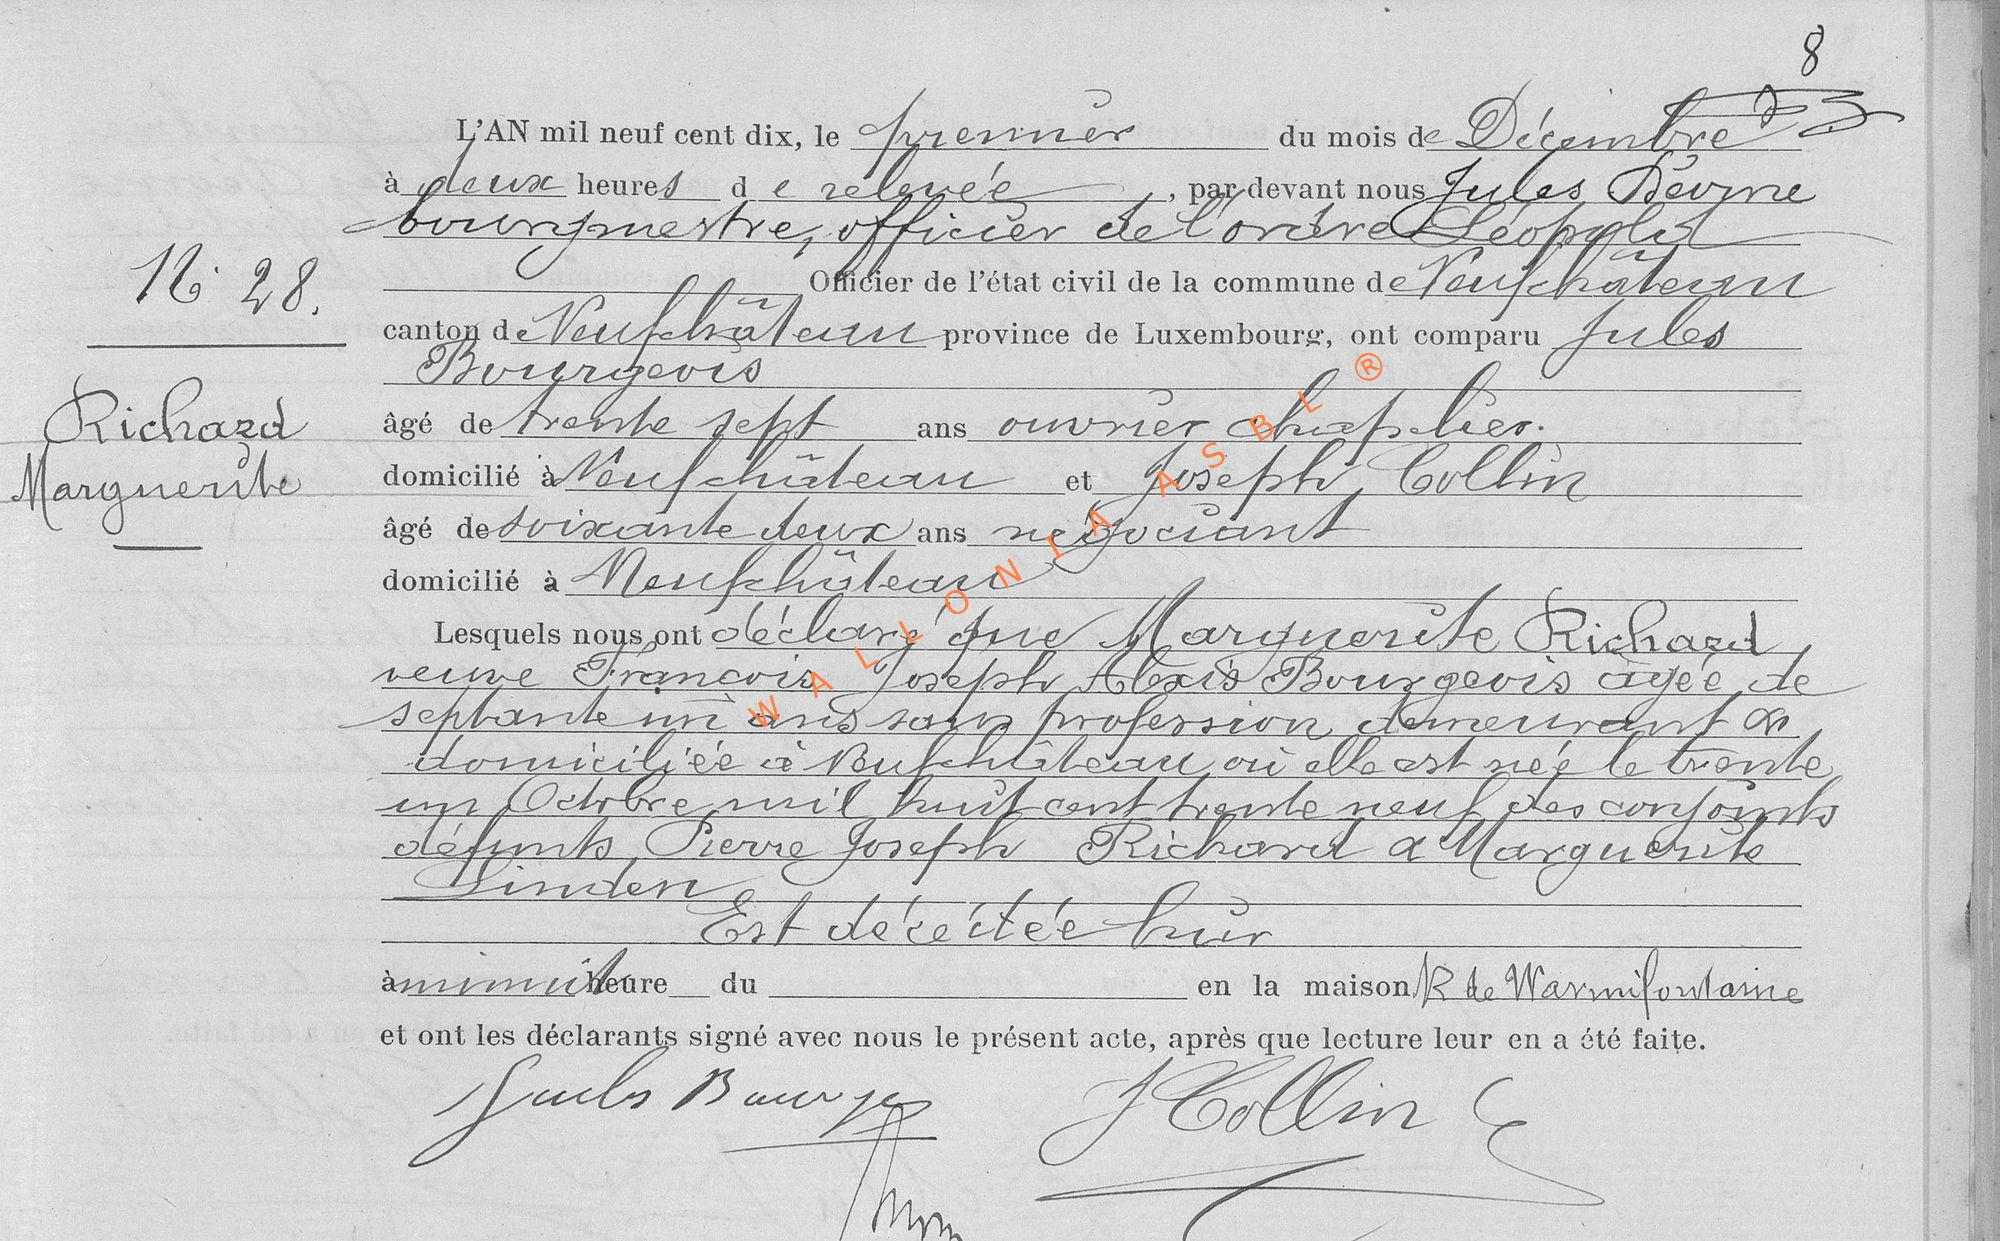 8
L'AN mil neuf cent dix, le premier du mois de Décembre
à deux heures de relevée, par devant nous Jules
bourgmestre, officier de l'ordre Léopold
N° 28.
Officier de l'état civil de la commune de Neufchâteau
canton de Neufchâteau province de Luxembourg, ont comparu Jules
Bourgeois
Richard
Marguerite
âgé de trente sept ans ouvrier chapelier.
domicilié à Neufchâteau et Joseph Collin
âgé de soixante deux ans négociant
domicilié à Neufchâteau
Lesquels nous ont déclaré que Marguerite Richard
veuve François Joseph Alexis Bourgeois âgée de
septante un ans sans profession demeurant &
domiciliée à Neufchâteau où elle est née le trente
un Octobre mil huit cent trente neuf des conjoints
défunts Pierre Joseph Richard & Marguerite
Linden
Est décédée hier
à minuit heure du en la maison R de Warmifontaine
et ont les déclarants signé avec nous le présent acte, après que lecture leur en a été faite.
Jules Bourgeois
J Collin
WALLONIA ASBL ®